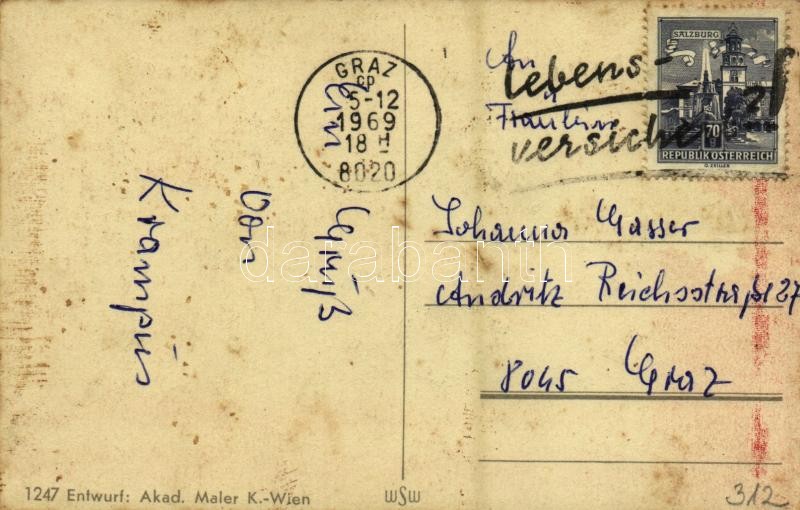 GRAZ
cp
5-12
1969
18 H
8020
lebens-
versichert?!
SALZBURG
70 g
REPUBLIK ÖSTERREICH
G. ZEILLER
An
Fräulein
Johanna Gasser
Andritz Reichsstraße 27
8045 Graz
Ein
Gruß
vom
Krampus
darabanth
1247 Entwurf: Akad. Maler K.-Wien
WSW
312